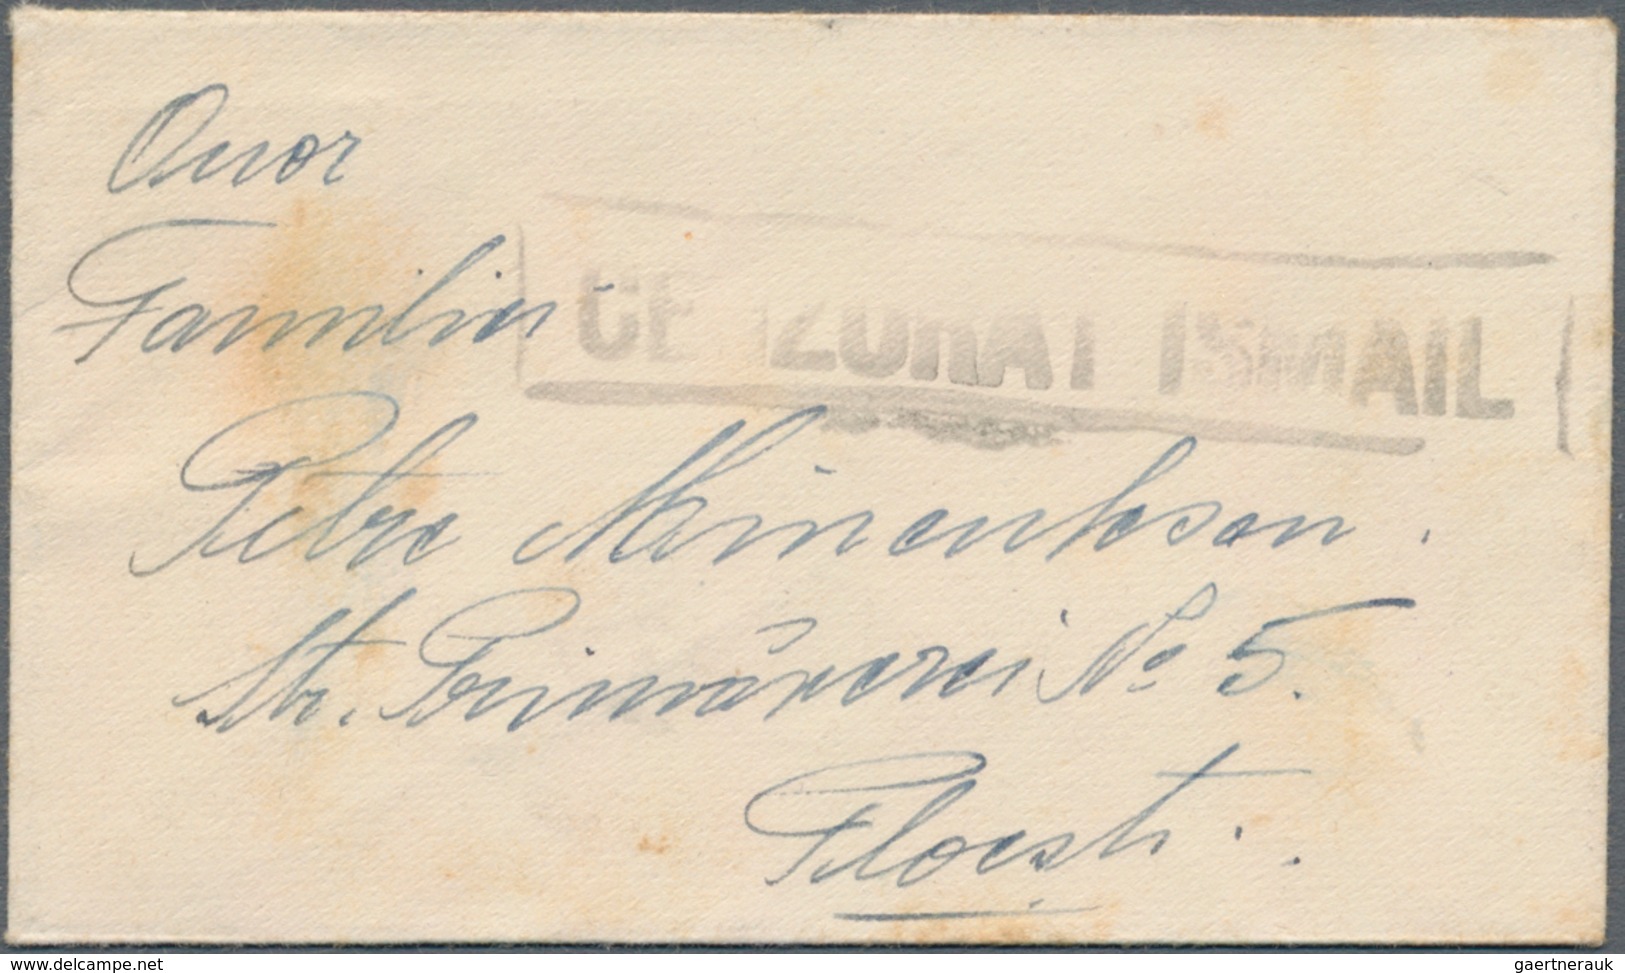 Onor
Familiei
CENZURAT ISMAIL
Petre
Str. Primărerei No 5.
Ploesti.
www.delcampe.net
gaertnerauk